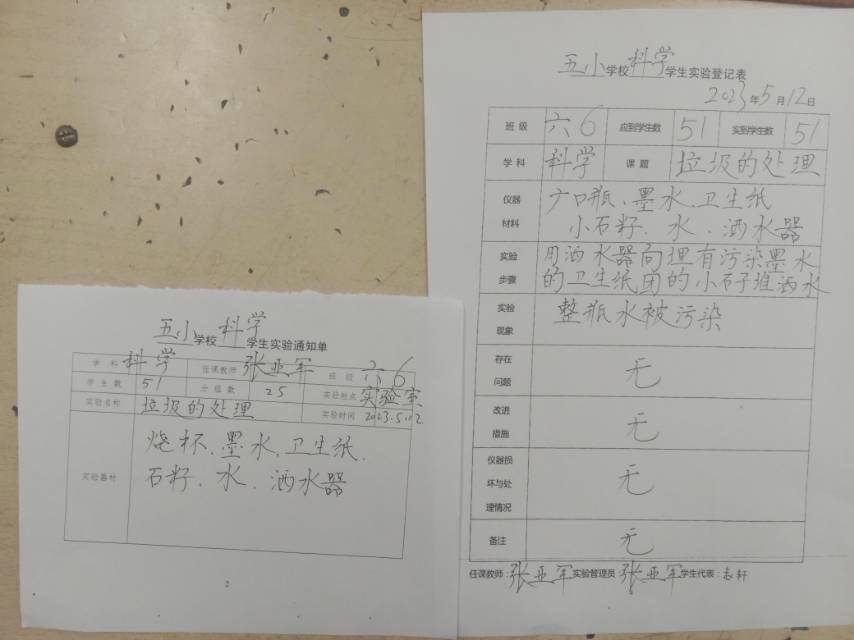 五小学校科学学生实验通知单
学科 科学 任课教师 张亚军 班级 六6
学生数 51 分组数 25 实验地点 实验室
实验名称 垃圾的处理 实验时间 2023.5.12
实验器材 烧杯、墨水、卫生纸、
石籽、水、洒水器
2
五小学校科学学生实验登记表
2023年5月12日
班级 六6 应到学生数 51 实到学生数 51
学科 科学 课题 垃圾的处理
仪器材料 广口瓶、墨水、卫生纸
小石籽、水、洒水器
实验步骤 用洒水器向埋有污染墨水
的卫生纸团的小石子堆洒水
实验现象 整瓶水被污染
存在问题 无
改进措施 无
仪器损坏与处理情况 无
备注 无
任课教师:张亚军 实验管理员 张亚军 学生代表:志轩